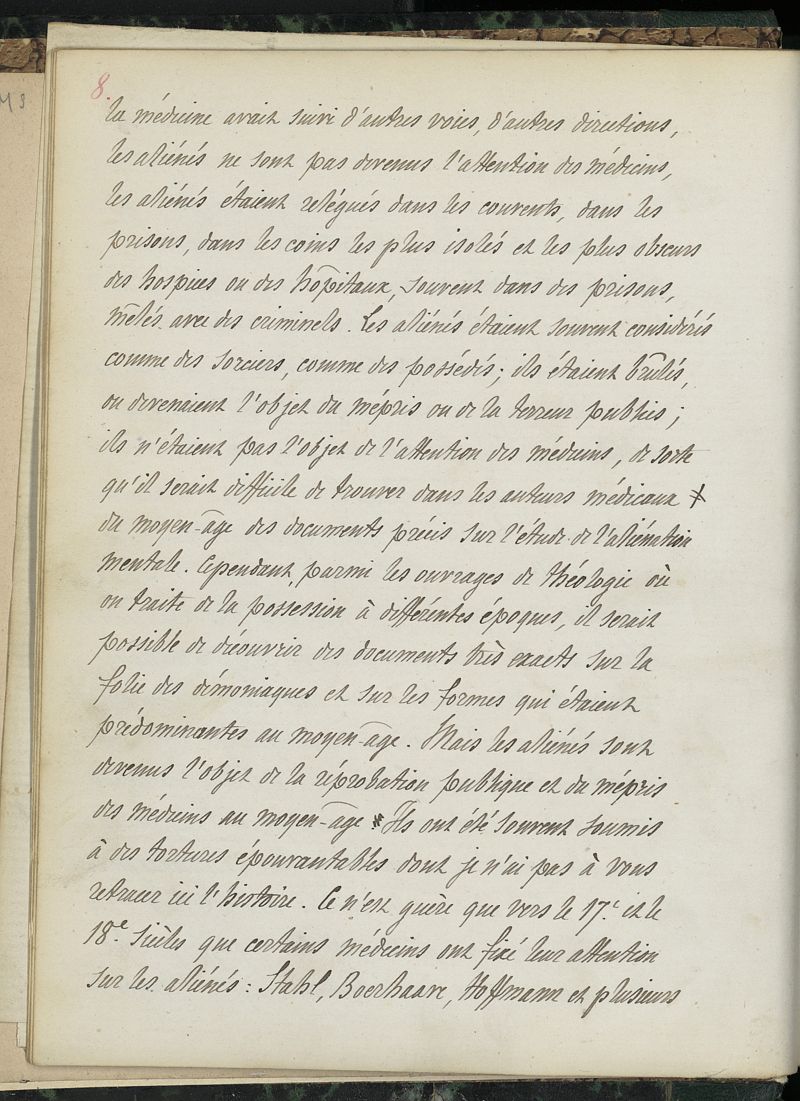 8.
la médecine avait suivi d'autres voies, d'autres directions,
les aliénés ne sont pas devenus l'attention des médecins,
les aliénés étaient relégués dans les couvents, dans les
prisons, dans les coins les plus isolés et les plus obscurs
des hospices ou des hôpitaux, souvent dans des prisons,
mêlés avec des criminels. Les aliénés étaient souvent considérés
comme des sorciers, comme des possédés; ils étaient brûlés,
ou devenaient l'objet du mépris ou de la terreur publics;
ils n'étaient pas l'objet de l'attention des médecins, de sorte
qu'il serait difficile de trouver dans les auteurs médicaux
du moyen-âge des documents précis sur l'étude de l'aliénation
mentale. Cependant, parmi les ouvrages de théologie où
on traite de la possession à différentes époques, il serait
possible de découvrir des documents très exacts sur la
folie des démoniaques et sur les formes qui étaient
prédominantes au moyen-âge. Mais les aliénés sont
devenus l'objet de la réprobation publique et du mépris
des médecins au moyen-âge. Ils ont été souvent soumis
à des tortures épouvantables dont je n'ai pas à vous
retracer ici l'histoire. Ce n'est guère que vers le 17.e et le
18.e siècles que certains médecins ont fixé leur attention
sur les aliénés: Stahl, Boerhaave, Hoffmann et plusieurs